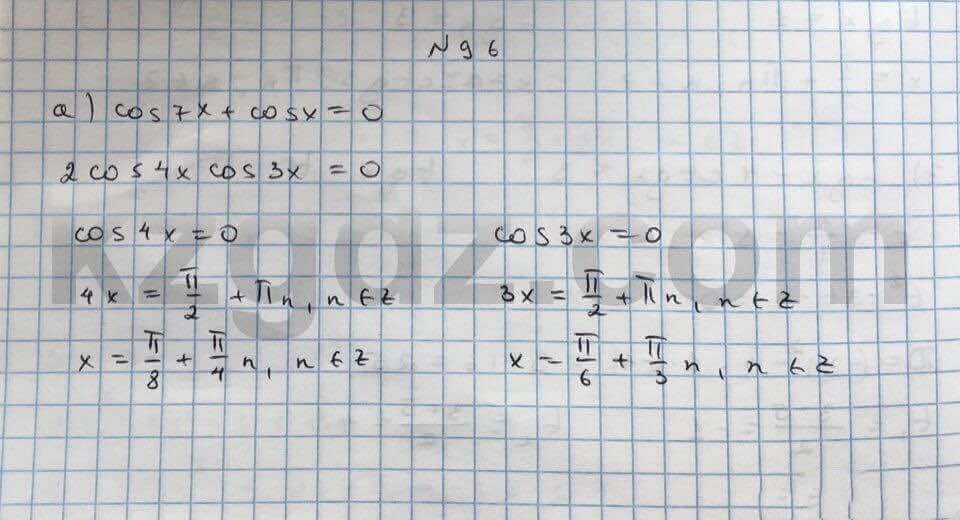 N 96
а) cos7x + cosx = 0
2 cos4x cos3x = 0
cos4x = 0
4x = π/2 + πn, n ∈ Z
x = π/8 + π/4 n, n ∈ Z
cos3x = 0
3x = π/2 + πn, n ∈ Z
x = π/6 + π/3 n, n ∈ Z
kzgdz.com